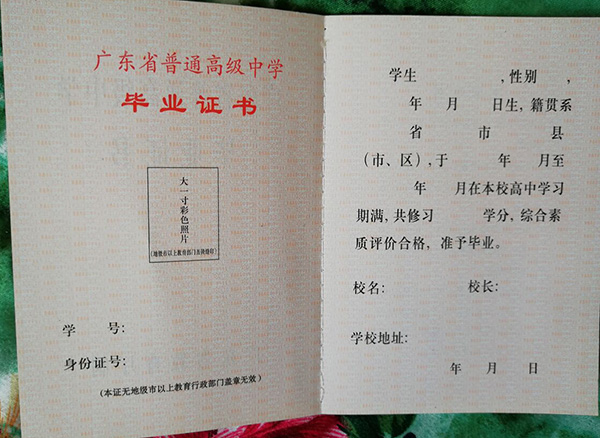 广东省普通高级中学
毕业证书
大一寸彩色照片
学 号：
身份证号：
（本证无地级市以上教育行政部门盖章无效）
学生 ，性别 ，
年 月 日生，籍贯系
省 市 县
（市、区），于 年 月至
年 月在本校高中学习
期满，共修习 学分，综合素
质评价合格，准予毕业。
校名： 校长：
学校地址：
年 月 日